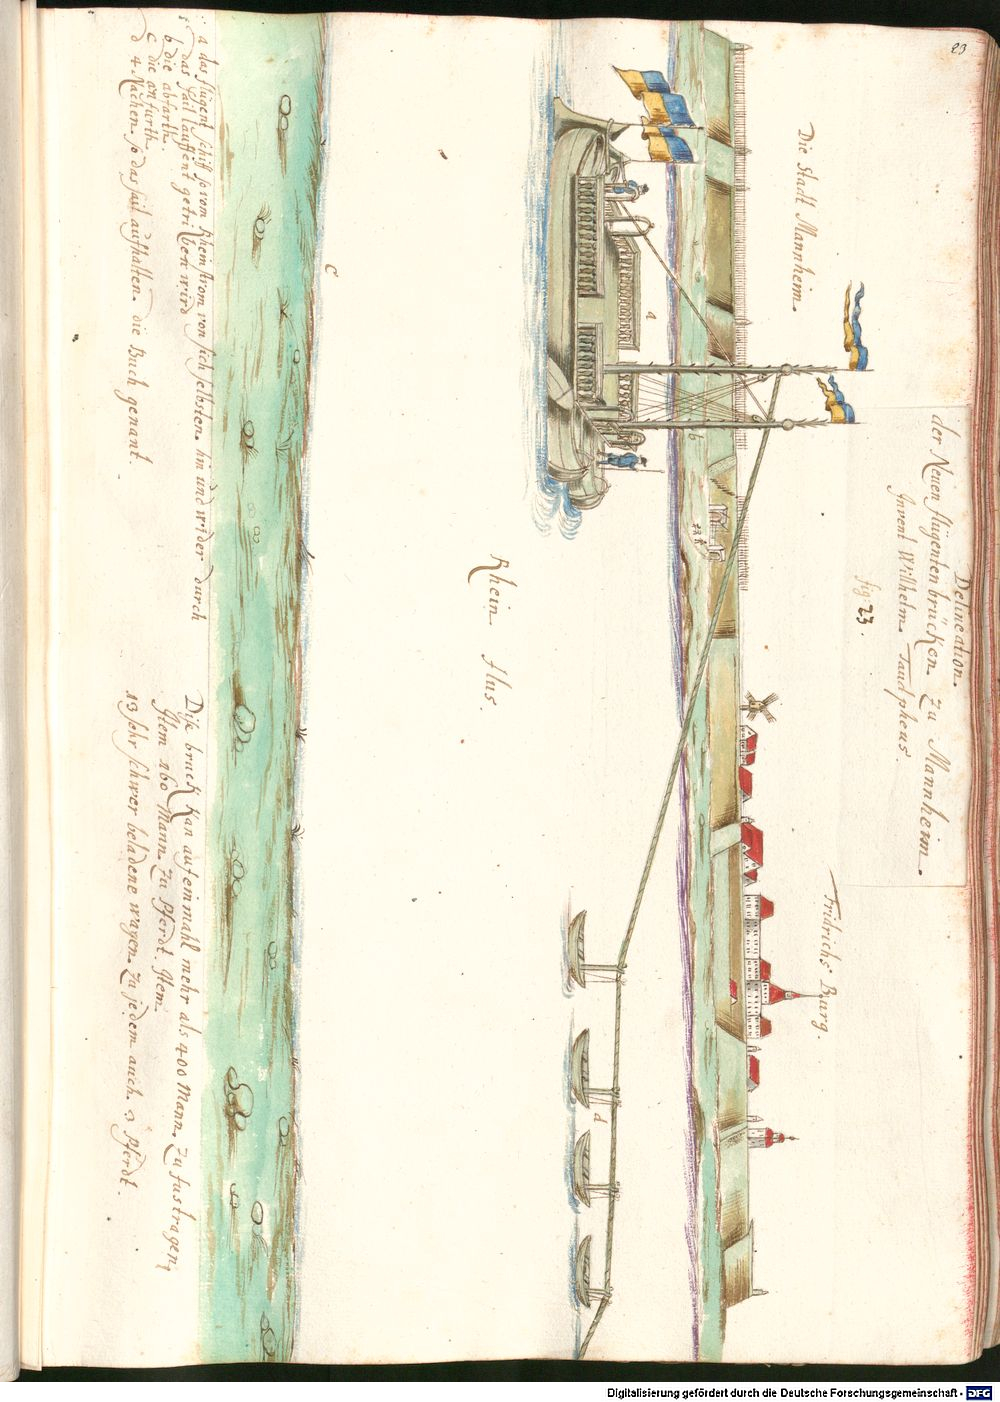 23
Delineation.
der Neuen flügenten brücken. Zu Mannheim.
Invent Willhelm.
fig: 23.
Die Stadt Mannheim.
Fridrichs Burg.
a
b
c
d
Rhein flus.
a das flügent schiff so vom Rheinstrom von sich selbsten. hin und wider durch
das sail lauffent getriben wird
b die abfarth.
c die anfurth.
d 4 Nachen. so das sail aufhalten. die Buch genant.
Dise bruck kan auf ein mahl mehr als 400 Mann. Zu fus tragen
Item 160 Mann. Zu Pferdt. Item
13 sehr schwer beladene wagen. Zu jedem auch. 2 Pferdt.
Digitalisierung gefördert durch die Deutsche Forschungsgemeinschaft - DFG